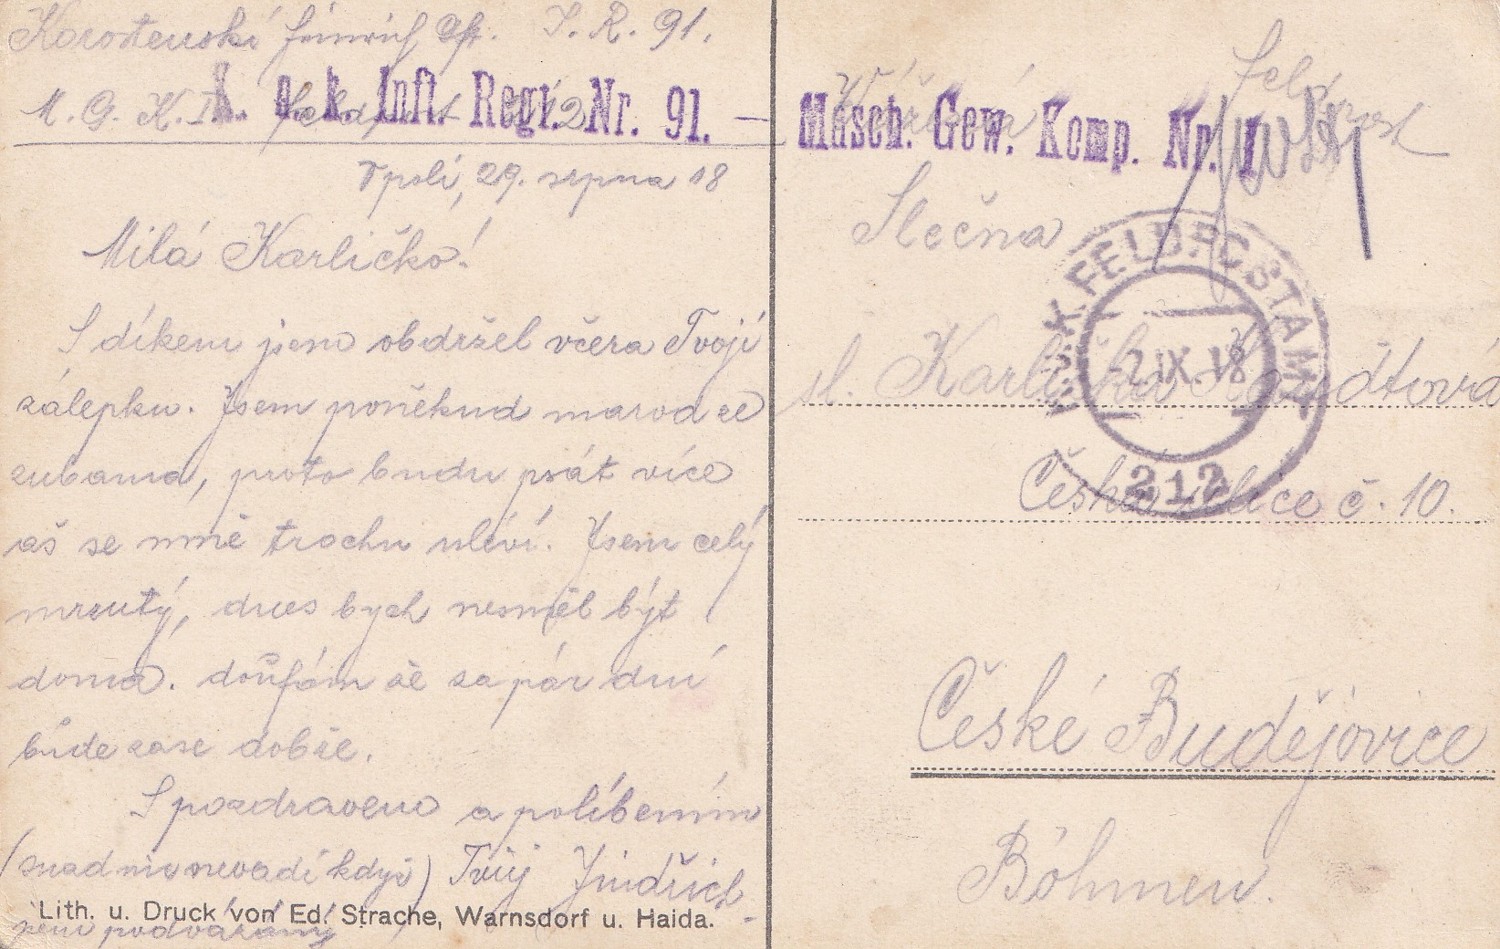 Korostenski Heinrich Gft. I. R. 91.
K. u. k. Inft. Regt. Nr. 91. — Masch. Gew. Komp. Nr. I
M. G. K. I. Feldpost 212
V poli, 29. srpna 18
Milá Karličko!
S díkem jsem obdržel včera Tvoji
zálepku. Jsem poněkud marod se
zubama, proto budu psát více
až se mně trochu uleví. Jsem celý
mrzutý, dnes bych nesměl být
doma. doufám že za pár dní
bude zase dobře.
S pozdravem a políbením
(snad nic nevadí když) Tvůj Jindřich
jsem podvázaný
Lith. u. Druck von Ed. Strache, Warnsdorf u. Haida.
Feldpost
Vážená
Slečna
K.u.K. FELDPOSTAMT
-2.IX.18
212
sl. Karlička
Česká ulice č. 10.
České Budějovice
Böhmen.